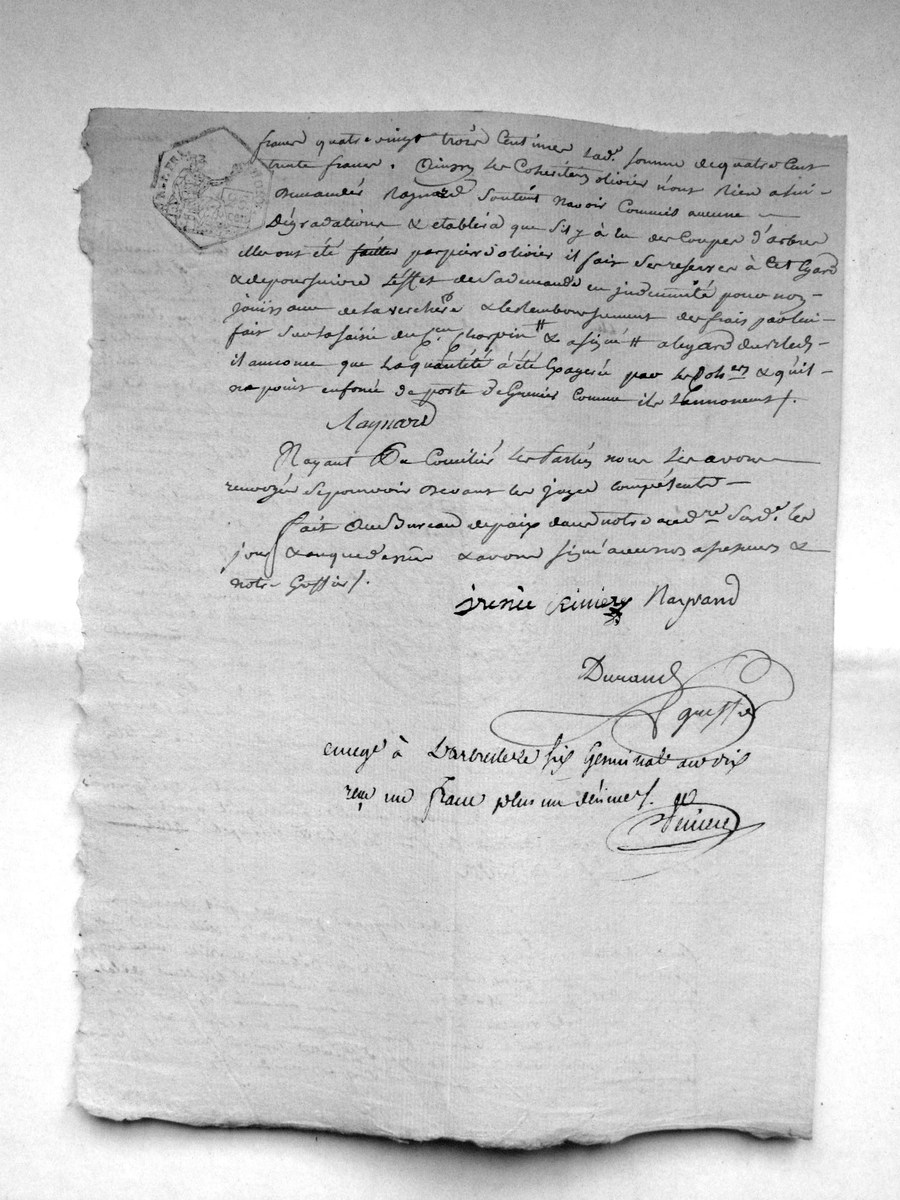 francs quatre vingt trois Centimes lad. somme de quatre Cent
trente francs. Ainsy les Coheritiers olivier n'ont Rien a lui
demander Raynard soutient navoir Commis aucune
Dégradations & etablira que S'il y à Eu des Coupes d'arbres
elles ont été faittes par pierre olivier il fait Se reserver à Cet Egard
& de poursuivre l'effet de Sa demande en jndemnité pour non
jouissance de la verchere & le Remboursement des frais par lui
fait Sur la saisie du Cen Charpin # & a signé # a legard du bled
il annonce que la quantité à été Exagerée par les Coh.ers & qu'il
na point enfoncé de porte de Grenier Comme ils l'annoncent /.
Raynard
Nayant Pu Concilier les Parties nous les avons
renvoyés Se pourvoir devant les juges compétents
fait Au Bureau de paix dans notre Sus d. les
jour & an que dessus & avons signé avec nos assesseurs &
notre Greffier /.
jrenée Riviere Raynard
Durand
greffier
enregé à Larbresle le six Germinal an dix
reçu un franc plus un décime /.